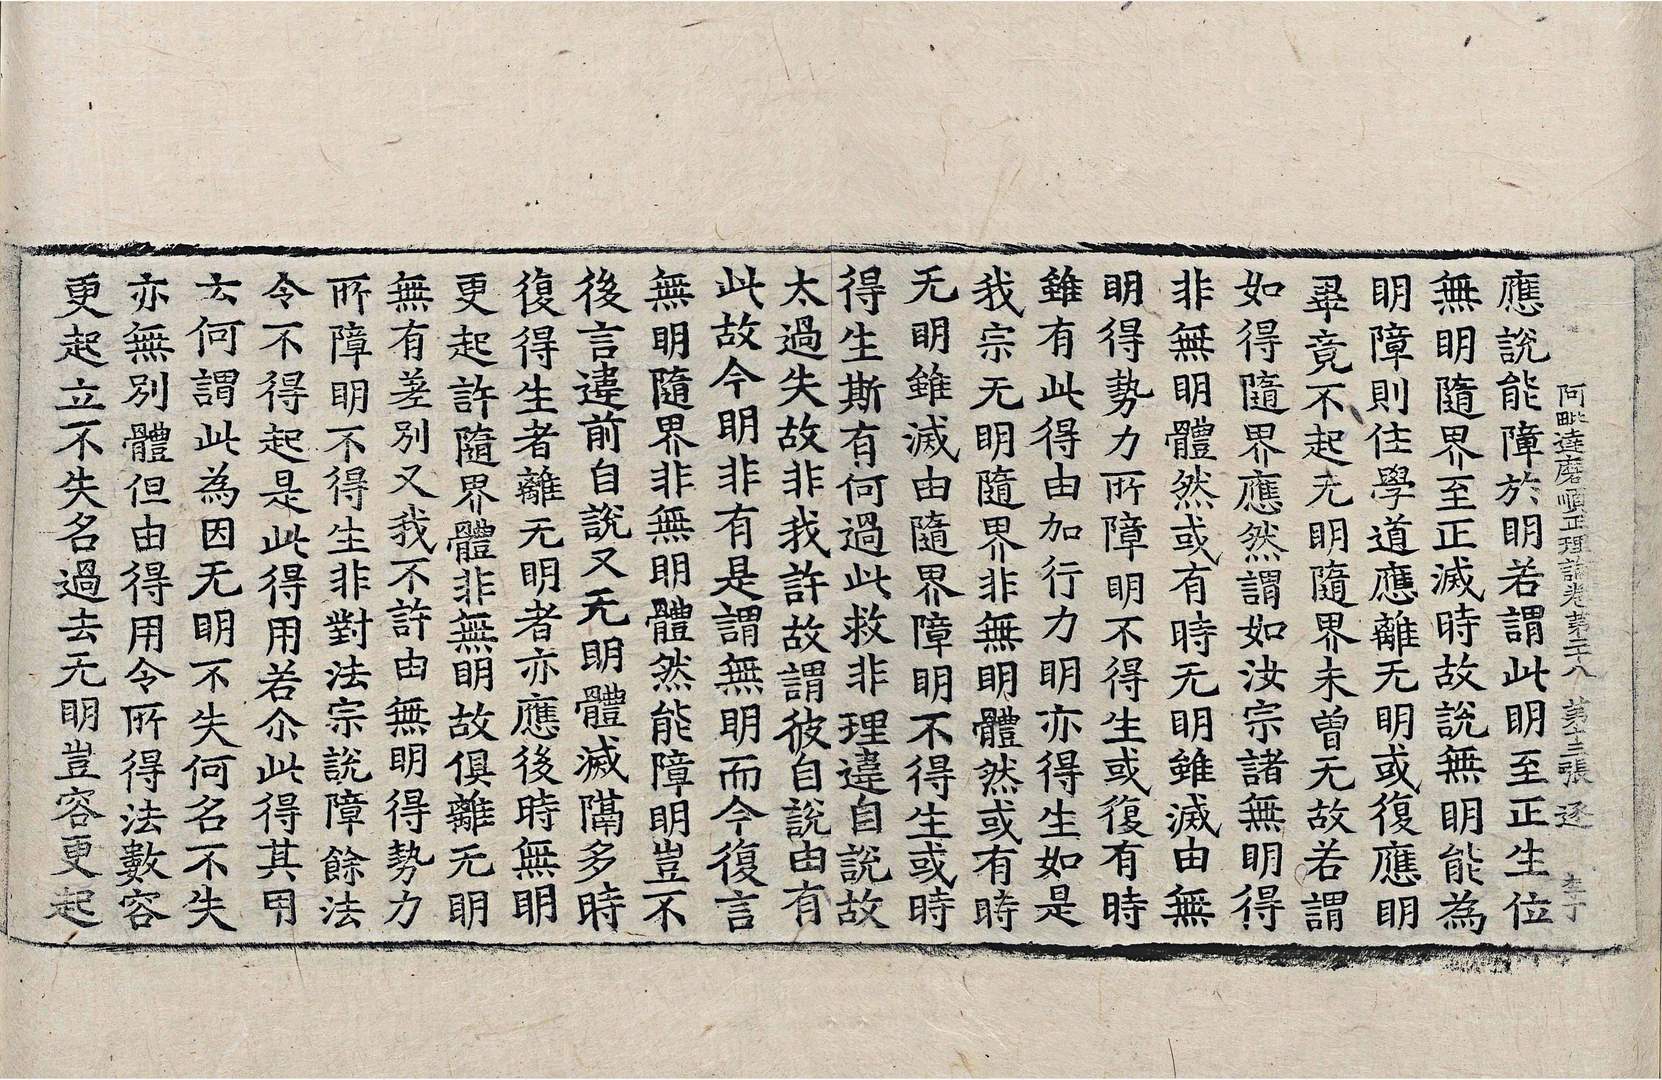 阿毗達磨順正理論卷第二十八 第十三張 逐 李丁
應說能障於明若謂此明至正生位
無明隨界至正滅時故說無明能為
明障則住學道應離无明或復應明
畢竟不起无明隨界未曾无故若謂
如得隨界應然謂如汝宗諸無明得
非無明體然或有時无明雖滅由無
明得勢力所障明不得生或復有時
雖有此得由加行力明亦得生如是
我宗无明隨界非無明體然或有時
无明雖滅由隨界障明不得生或時
得生斯有何過此救非理違自說故
太過失故非我許故謂彼自說由有
此故今明非有是謂無明而今復言
無明隨界非無明體然能障明豈不
後言違前自說又无明體滅隔多時
復得生者離无明者亦應後時無明
更起許隨界體非無明故俱離无明
無有差別又我不許由無明得勢力
所障明不得生非對法宗說障餘法
令不得起是此得用若尒此得其用
云何謂此為因无明不失何名不失
亦無別體但由得用令所得法數容
更起立不失名過去无明豈容更起